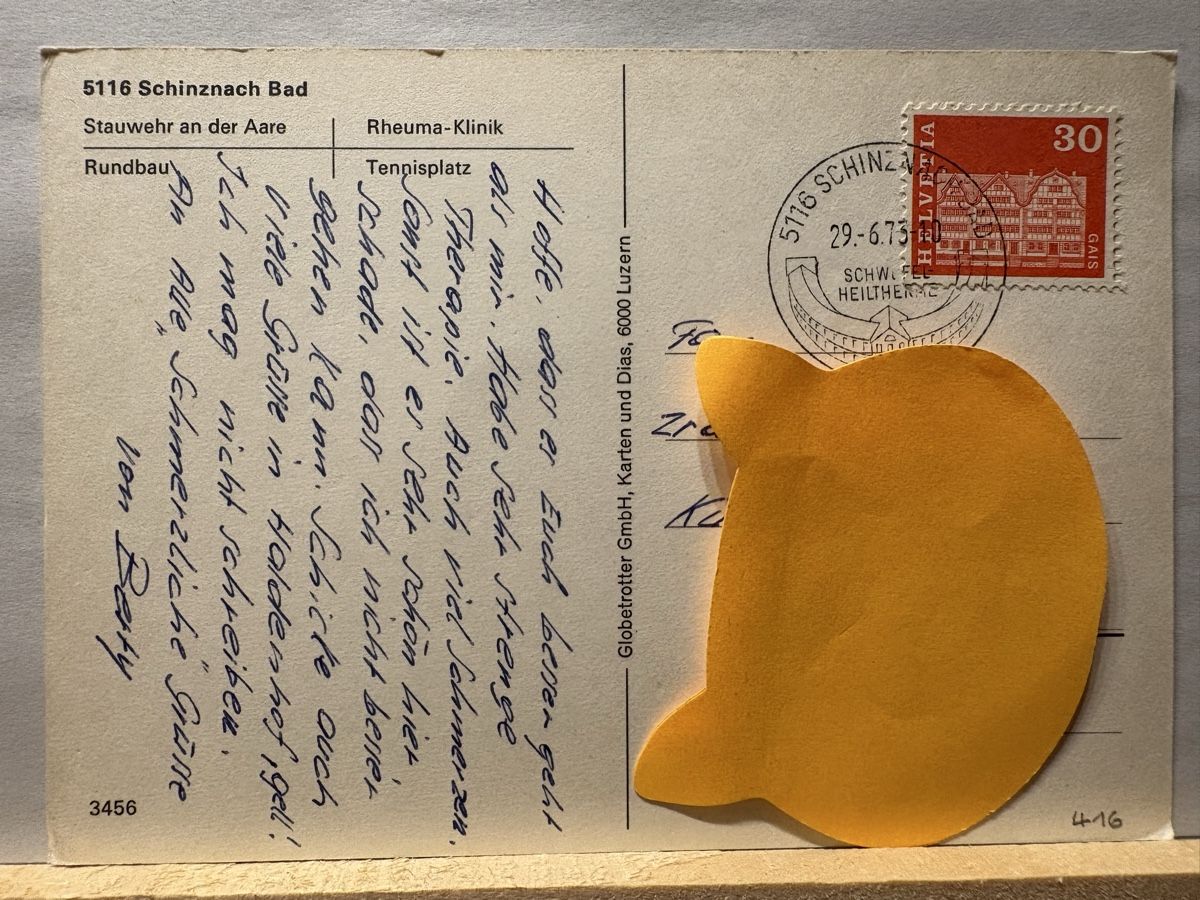 5116 Schinznach Bad
Stauwehr an der Aare
Rheuma-Klinik
Rundbau
Tennisplatz
Hoffe, dass es Euch besser geht
als mir. Habe sehr strenge
Therapie. Auch viel Schmerzen.
Sonst ist es sehr schön hier
schade, das ich nicht besser
gehen kann. Schicke auch
viele Grüsse in Haldenhof, gell!
Ich mag nicht schreiben.
An Alle „Schmerzliche" Grüsse
von Berty
3456
Globetrotter GmbH, Karten und Dias, 6000 Luzern
HELVETIA
30
GAIS
5116 SCHINZNACH BAD
29.-6.73-10
SCHWEFEL-
HEILTHERME
416